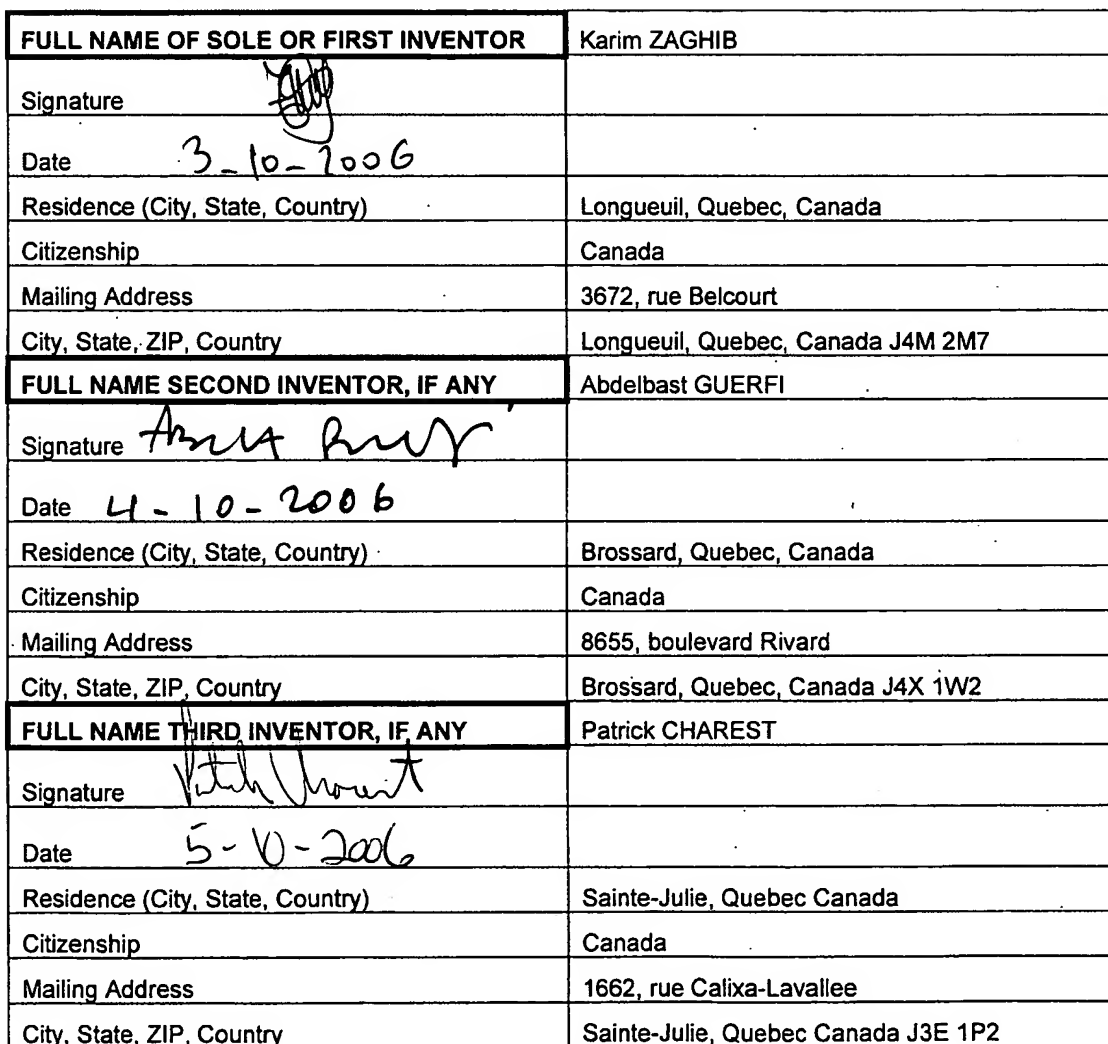 FULL NAME OF SOLE OR FIRST INVENTOR Karim ZAGHIB
Signature
Date 3-10-2006
Residence (City, State, Country) Longueuil, Quebec, Canada
Citizenship Canada
Mailing Address 3672, rue Belcourt
City, State, ZIP, Country Longueuil, Quebec, Canada J4M 2M7
FULL NAME SECOND INVENTOR, IF ANY Abdelbast GUERFI
Signature
Date 4-10-2006
Residence (City, State, Country) Brossard, Quebec, Canada
Citizenship Canada
Mailing Address 8655, boulevard Rivard
City, State, ZIP, Country Brossard, Quebec, Canada J4X 1W2
FULL NAME THIRD INVENTOR, IF ANY Patrick CHAREST
Signature
Date 5-10-2006
Residence (City, State, Country) Sainte-Julie, Quebec Canada
Citizenship Canada
Mailing Address 1662, rue Calixa-Lavallee
City, State, ZIP, Country Sainte-Julie, Quebec Canada J3E 1P2